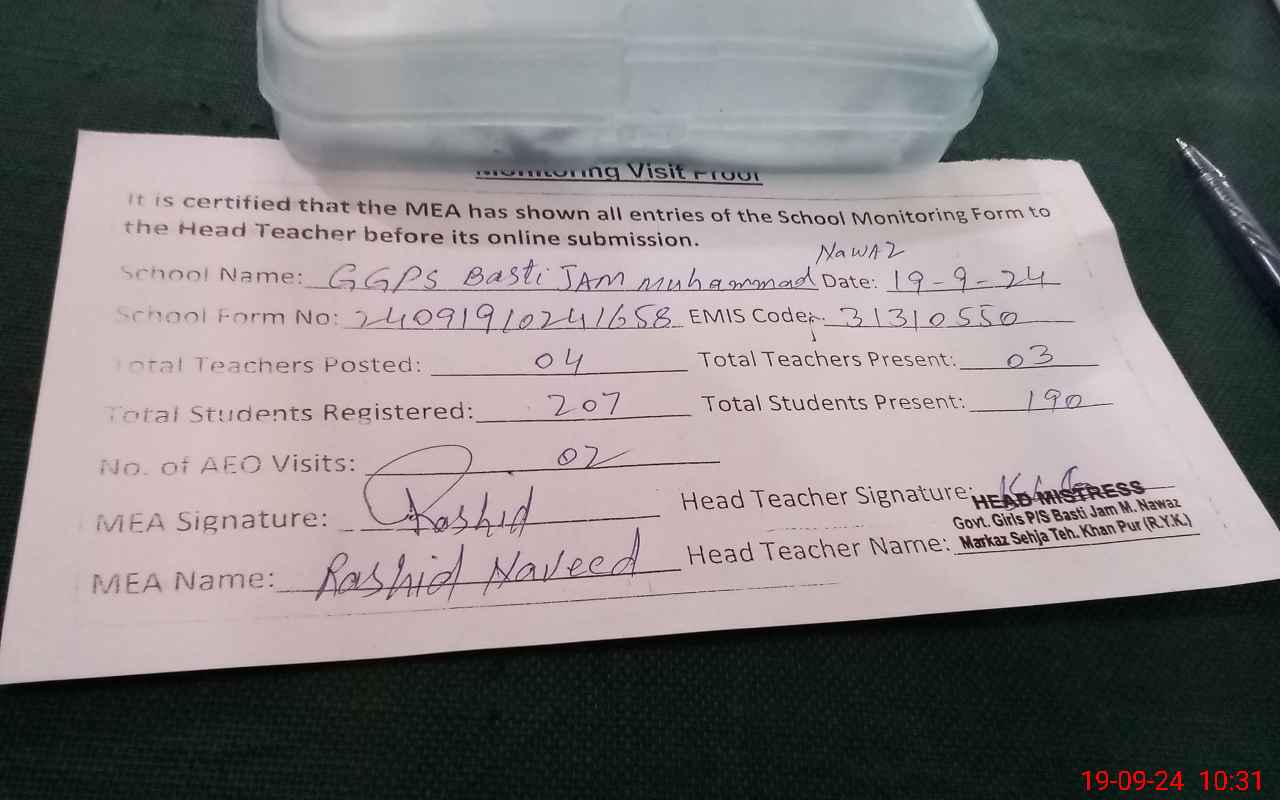 Monitoring Visit Proof
It is certified that the MEA has shown all entries of the School Monitoring Form to
the Head Teacher before its online submission.
NAWAZ
School Name: GGPS Basti JAM Muhammad Date: 19-9-24
School Form No: 24091910241658 EMIS Code: 31310550
Total Teachers Posted: 04 Total Teachers Present: 03
Total Students Registered: 207 Total Students Present: 190
No. of AEO Visits: 02
MEA Signature: Rashid Head Teacher Signature:
HEAD MISTRESS
Govt. Girls P/S Basti Jam M. Nawaz
Markaz Sehja Teh. Khan Pur (R.Y.K.)
MEA Name: Rashid Naveed Head Teacher Name:
19-09-24 10:31